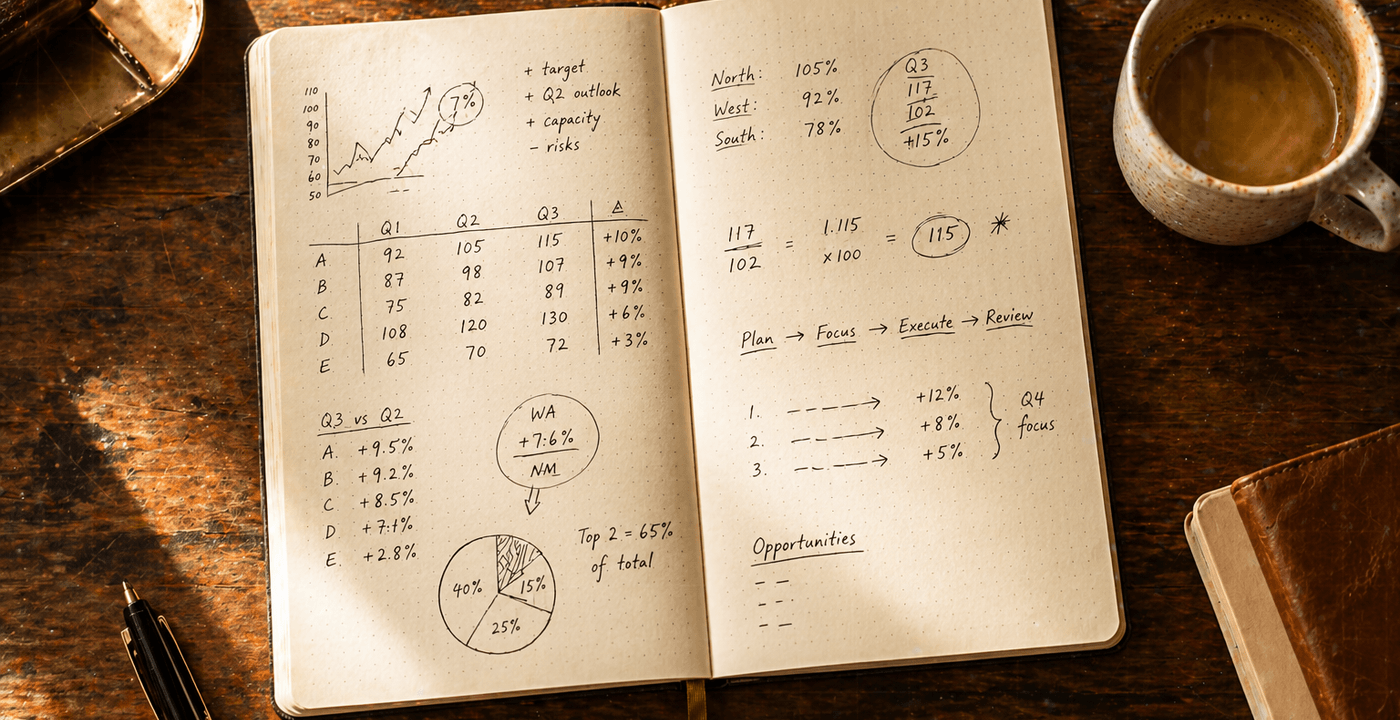 110
100
90
80
70
60
50
7%
+ target
+ Q2 outlook
+ capacity
− risks
Q1 Q2 Q3 Δ
A 92 105 115 +10%
B 87 98 107 +9%
C 75 82 89 +9%
D 108 120 130 +6%
E 65 70 72 +3%
Q3 vs Q2
A. +9.5%
B. +9.2%
C +8.5%
D
E. +2.8%
WA
+7:6%
NM
40%
15%
25%
Top 2 = 65%
of total
North: 105%
West: 92%
South: 78%
Q3
117
102
+15%
117
102
=
1.115
x100
=
115
*
Plan → Focus → Execute → Review
1. +12%
2. +8%
3. +5%
Q4
focus
Opportunities